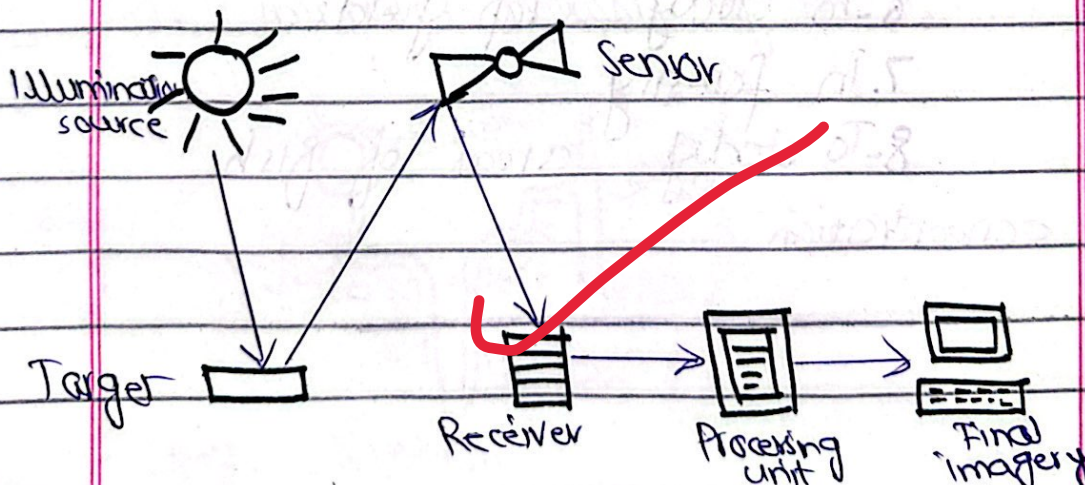 Illumination
source
Sensor
Target
Receiver
Processing
unit
Final
imagery